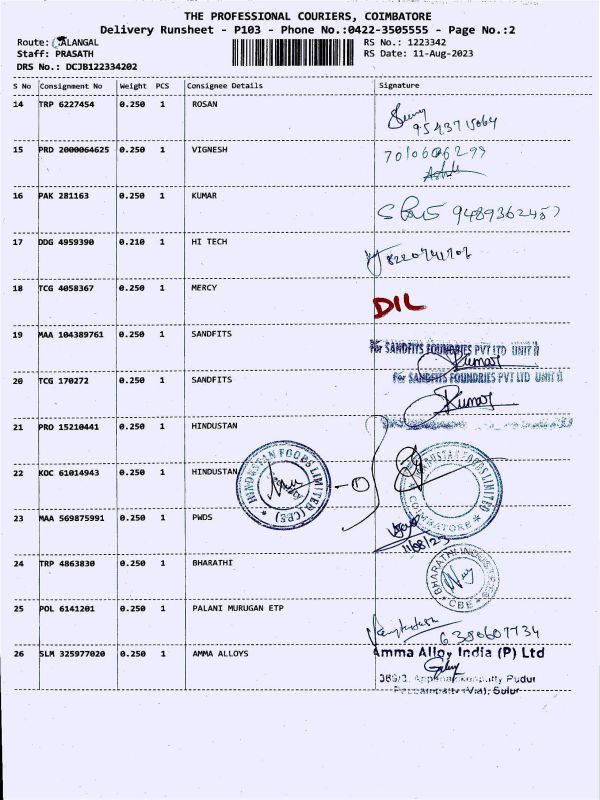 THE PROFESSIONAL COURIERS, COIMBATORE
Delivery Runsheet - P103 - Phone No.:0422-3505555 - Page No.:2
Route: ALANGAL
RS No.: 1223342
Staff: PRASATH
RS Date: 11-Aug-2023
DRS No.: DCJB122334202
S No Consignment No Weight PCS Consignee Details Signature
14 TRP 6227454 0.250 1 ROSAN
9543715064
15 PRD 2000064625 0.250 1 VIGNESH
16 PAK 281163 0.250 1 KUMAR
17 DDG 4959390 0.210 1 HI TECH
18 TCG 4058367 0.250 1 MERCY
DIL
19 MAA 104389761 0.250 1 SANDFITS
For SANDFITS FOUNDRIES PVT LTD UNIT II
Kumar
20 TCG 170272 0.250 1 SANDFITS
For SANDFITS FOUNDRIES PVT LTD UNIT II
Kumar
21 PRO 15210441 0.250 1 HINDUSTAN
22 KOC 61014943 0.250 1 HINDUSTAN
HINDUSTAN FOODS LIMITED (CBS)
HINDUSTAN FOODS LIMITED COIMBATORE
23 MAA 569875991 0.250 1 PWDS
11/08/23
24 TRP 4863830 0.250 1 BHARATHI
BHARATHI INDUSTRIES CBE
25 POL 6141201 0.250 1 PALANI MURUGAN ETP
6380607734
26 SLM 325977020 0.250 1 AMMA ALLOYS
Amma Alloy India (P) Ltd
Pudur
(Via), Sulur